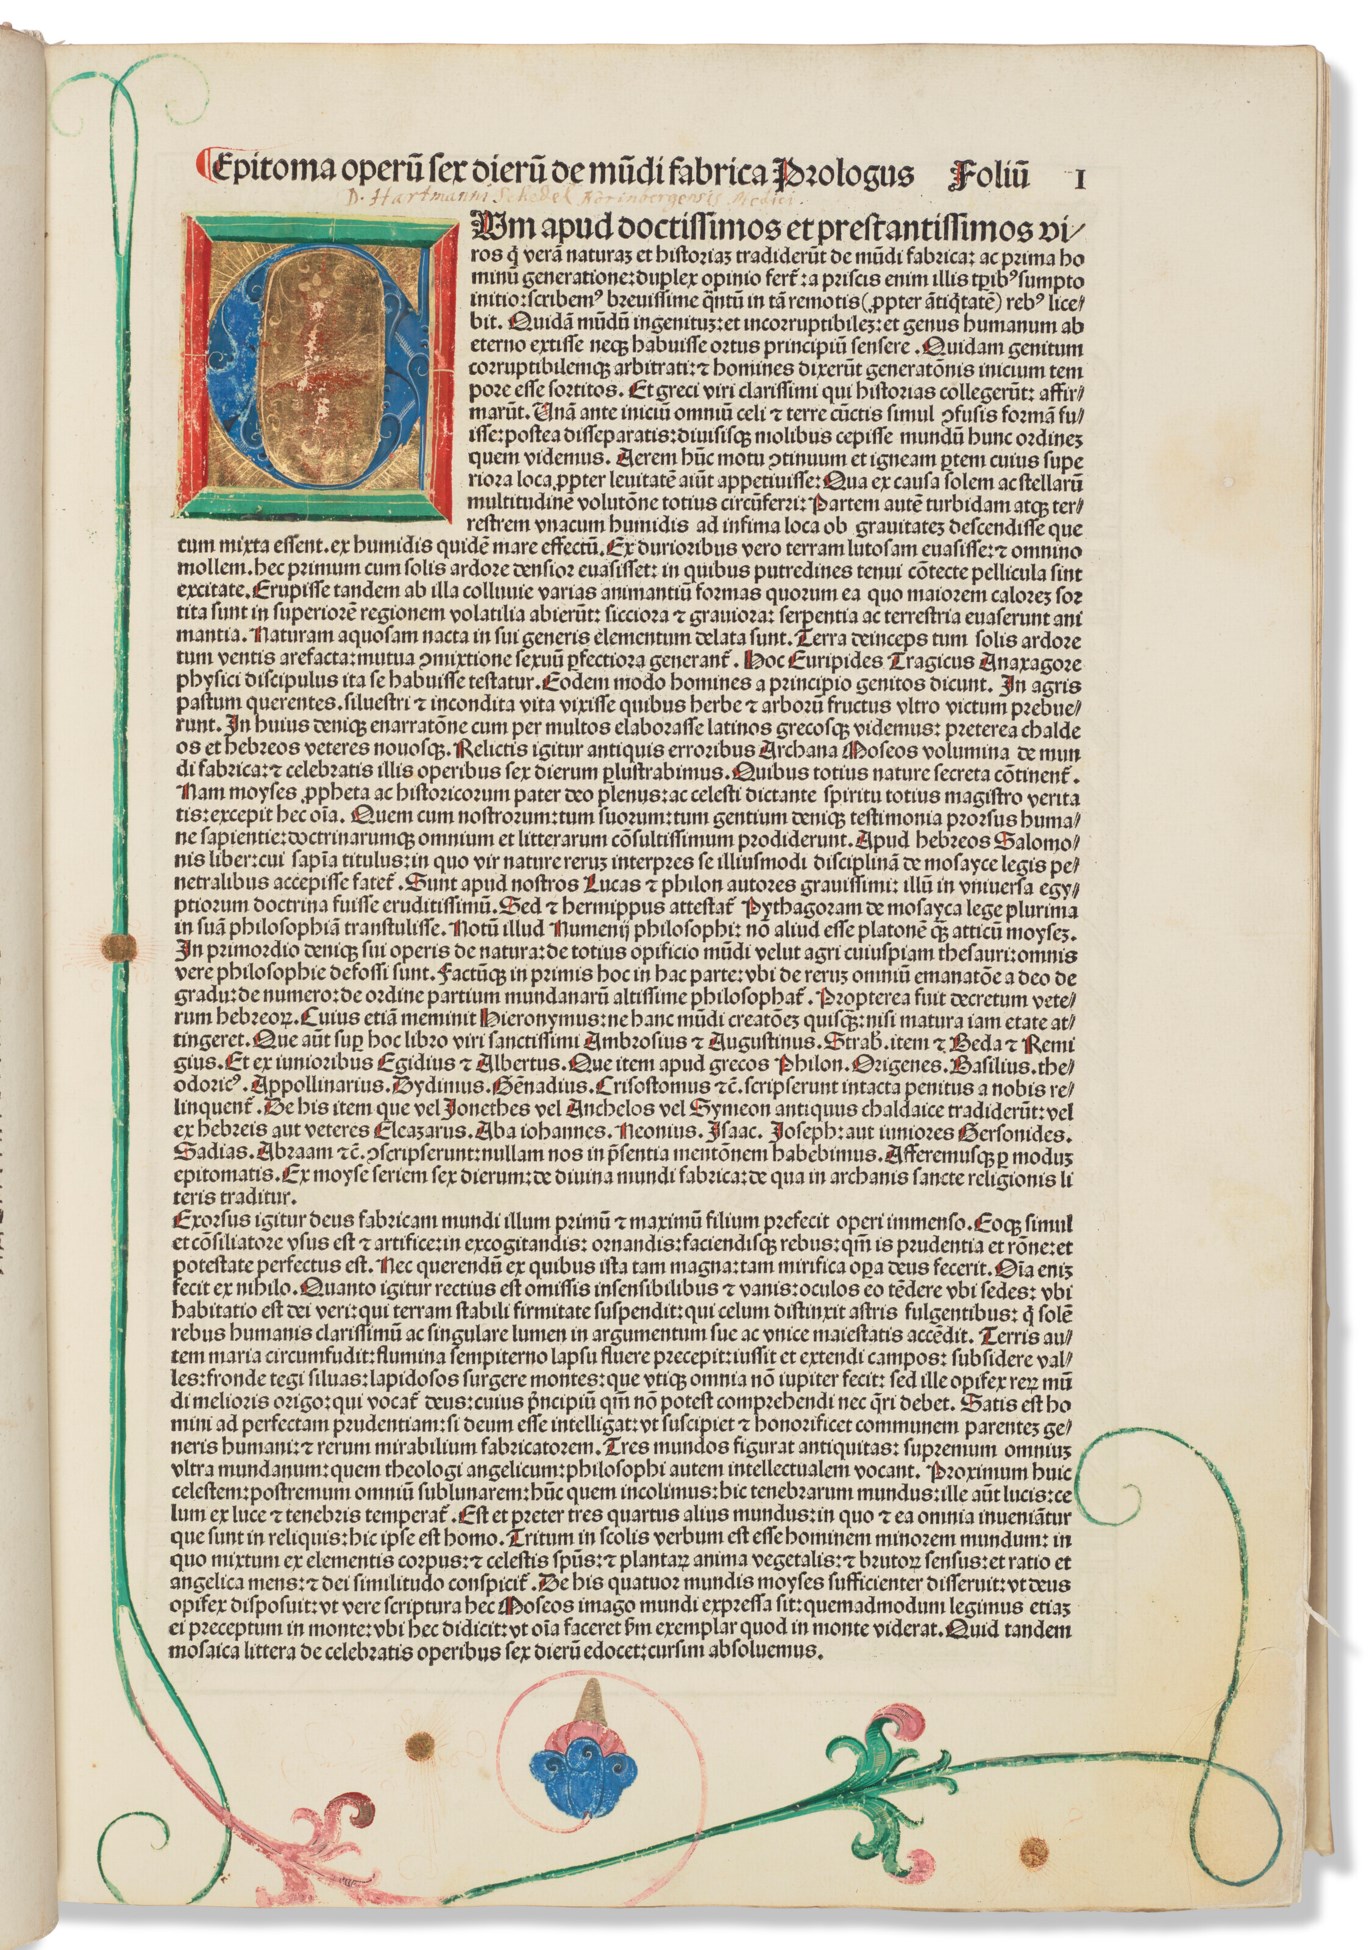 Epitoma operū sex dierū de mūdi fabrica Prologus Foliū I
D. Hartmanni Schedel Nörinbergensis Medici.
CUm apud doctissimos et prestantissimos vi/
ros q̄ verā naturaꝫ et historiaꝫ tradiderūt de mūdi fabrica: ac prima ho
minū generatione: duplex opinio fert̄: a priscis enim illis tꝑibꝰ sumpto
initio: scribemꝰ breuissime q̄ntū in tā remotis (ꝓpter ātiq̄tatē) rebꝰ lice/
bit. Quidā mūdū ingenituꝫ: et incorruptibileꝫ: et genus humanum ab
eterno extisse neqꝫ habuisse ortus principiū sensere. Quidam genitum
corruptibilemqꝫ arbitrati: ⁊ homines dixerūt generatōnis inicium tem
pore esse sortitos. Et greci viri clarissimi qui historias collegerūt: affir/
marūt. Unā ante iniciū omniū celi ⁊ terre cūctis simul ꝯfusis formā fu/
isse: postea disseparatis: diuisisqꝫ molibus cepisse mundū hunc ordineꝫ
quem videmus. Aerem hūc motu ꝯtinuum et igneam ꝑtem cuius supe
riora loca ꝓpter leuitatē aiūt appetiuisse: Qua ex causa solem ac stellarū
multitudine volutōne totius circūferri: Partem autē turbidam atqꝫ ter/
restrem vnacum humidis ad infima loca ob grauitateꝫ descendisse que
tum mixta essent. ex humidis quidē mare effectū. Ex durioribus vero terram lutosam euasisse: ⁊ omnino
mollem. hec primum cum solis ardore densior euasisset: in quibus putredines tenui cōtecte pellicula sint
excitate. Erupisse tandem ab illa colluuie varias animantiū formas quorum ea quo maiorem caloreꝫ sor
tita sunt in superiorē regionem volatilia abierūt: sicciora ⁊ grauiora: serpentia ac terrestria euaserunt ani
mantia. Naturam aquosam nacta in sui generis elementum delata sunt. Terra deinceps tum solis ardore
tum ventis arefacta: mutua ꝯmixtione sexuū ꝑfectiora generant̄. Hoc Euripides Tragicus Anaxagore
physici discipulus ita se habuisse testatur. Eodem modo homines a principio genitos dicunt. In agris
pastum querentes. siluestri ⁊ incondita vita vixisse quibus herbe ⁊ arborū fructus vltro victum prebue/
runt. In huius deniqꝫ enarratōne cum per multos elaborasse latinos grecosqꝫ videmus: preterea chalde
os et hebreos veteres nouosqꝫ. Relictis igitur antiquis erroribus Archana Moseos volumina de mun
di fabrica: ⁊ celebratis illis operibus sex dierum ꝑlustrabimus. Quibus totius nature secreta cōtinent̄.
Nam moyses ꝓpheta ac historicorum pater deo plenus: ac celesti dictante spiritu totius magistro verita
tis: excepit hec oīa. Quem cum nostrorum: tum suorum: tum gentium deniqꝫ testimonia prorsus huma/
ne sapientie: doctrinarumqꝫ omnium et litterarum cōsultissimum prodiderunt. Apud hebreos Salomo/
nis liber: cui sapīa titulus: in quo vir nature reruꝫ interpres se illiusmodi disciplinā de mosayce legis pe/
netralibus accepisse fatet̄. Sunt apud nostros Lucas ⁊ philon autores grauissimi: illū in vniuersa egy/
ptiorum doctrina fuisse eruditissimū. Sed ⁊ hermippus attestat̄ Pythagoram de mosayca lege plurima
in suā philosophiā transtulisse. Notū illud Numenij philosophi: nō aliud esse platonē q̄ꝫ atticū moyseꝫ.
In primordio deniqꝫ sui operis de natura: de totius opificio mūdi velut agri cuiuspiam thesauri: omnis
vere philosophie defossi sunt. Factūqꝫ in primis hoc in hac parte: vbi de reruꝫ omniū emanatōe a deo de
gradu: de numero: de ordine partium mundanarū altissime philosophat̄. Propterea fuit decretum vete/
rum hebreoꝝ. Cuius etiā meminit Hieronymus: ne hanc mūdi creatōeꝫ quisqꝫ: nisi matura iam etate at/
tingeret. Que aūt suꝑ hoc libro viri sanctissimi Ambrosius ⁊ Augustinus. Strab̄. item ⁊ Beda ⁊ Remi
gius. Et ex iunioribus Egidius ⁊ Albertus. Que item apud grecos Philon. Origenes. Basilius. the/
odoricꝰ. Appollinarius. Dydimus. Gēnadius. Crisostomus ⁊c̄. scripserunt intacta penitus a nobis re/
linquent̄. De his item que vel Jonethes vel Anchelos vel Symeon antiquus chaldaice tradiderūt: vel
ex hebreis aut veteres Eleazarus. Aba iohannes. Neonius. Isaac. Joseph: aut iuniores Gersonides.
Sadias. Abraam ⁊c̄. ꝯscripserunt: nullam nos in p̄sentia mentōnem habebimus. Afferemusqꝫ ꝑ moduꝫ
epitomatis. Ex moyse seriem sex dierum: de diuina mundi fabrica: de qua in archanis sancte religionis li
teris traditur.
Exorsus igitur deus fabricam mundi illum primū ⁊ maximū filium prefecit operi immenso. Eoqꝫ simul
et cōsiliatore vsus est ⁊ artifice: in excogitandis: ornandis: faciendisqꝫ rebus: qm̄ is prudentia et rōne: et
potestate perfectus est. Nec querendū ex quibus ista tam magna: tam mirifica oꝑa deus fecerit. Oīa eniꝫ
fecit ex nihilo. Quanto igitur rectius est omissis insensibilibus ⁊ vanis: oculos eo tēdere vbi sedes: vbi
habitatio est dei veri: qui terram stabili firmitate suspendit: qui celum distinxit astris fulgentibus: q̄ solē
rebus humanis clarissimū ac singulare lumen in argumentum sue ac vnice maiestatis accēdit. Terris au/
tem maria circumfudit: flumina sempiterno lapsu fluere precepit: iussit et extendi campos: subsidere val/
les: fronde tegi siluas: lapidosos surgere montes: que vtiqꝫ omnia nō iupiter fecit: sed ille opifex reꝝ mū
di melioris origo: qui vocat̄ deus: cuius p̄ncipiū qm̄ nō potest comprehendi nec q̄ri debet. Satis est ho
mini ad perfectam prudentiam: si deum esse intelligat: vt suscipiet ⁊ honorificet communem parenteꝫ ge/
neris humani: ⁊ rerum mirabilium fabricatorem. Tres mundos figurat antiquitas: supremum omniuꝫ
vltra mundanum: quem theologi angelicum: philosophi autem intellectualem vocant. Proximum huic
celestem: postremum omniū sublunarem: hūc quem incolimus: hic tenebrarum mundus: ille aūt lucis: ce
lum ex luce ⁊ tenebris temperat̄. Est et preter tres quartus alius mundus: in quo ⁊ ea omnia inueniātur
que sunt in reliquis: hic ipse est homo. Tritum in scolis verbum est esse hominem minorem mundum: in
quo mixtum ex elementis corpus: ⁊ celestis spūs: ⁊ plantaꝝ anima vegetalis: ⁊ brutoꝝ sensus: et ratio et
angelica mens: ⁊ dei similitudo conspicit̄. De his quatuor mundis moyses sufficienter disseruit: vt deus
opifex disposuit: vt vere scriptura hec Moseos imago mundi expressa sit: quemadmodum legimus etiaꝫ
ei preceptum in monte: vbi hec didicit: vt oīa faceret ꝑm exemplar quod in monte viderat. Quid tandem
mosaica littera de celebratis operibus sex dierū edocet: cursim absoluemus.